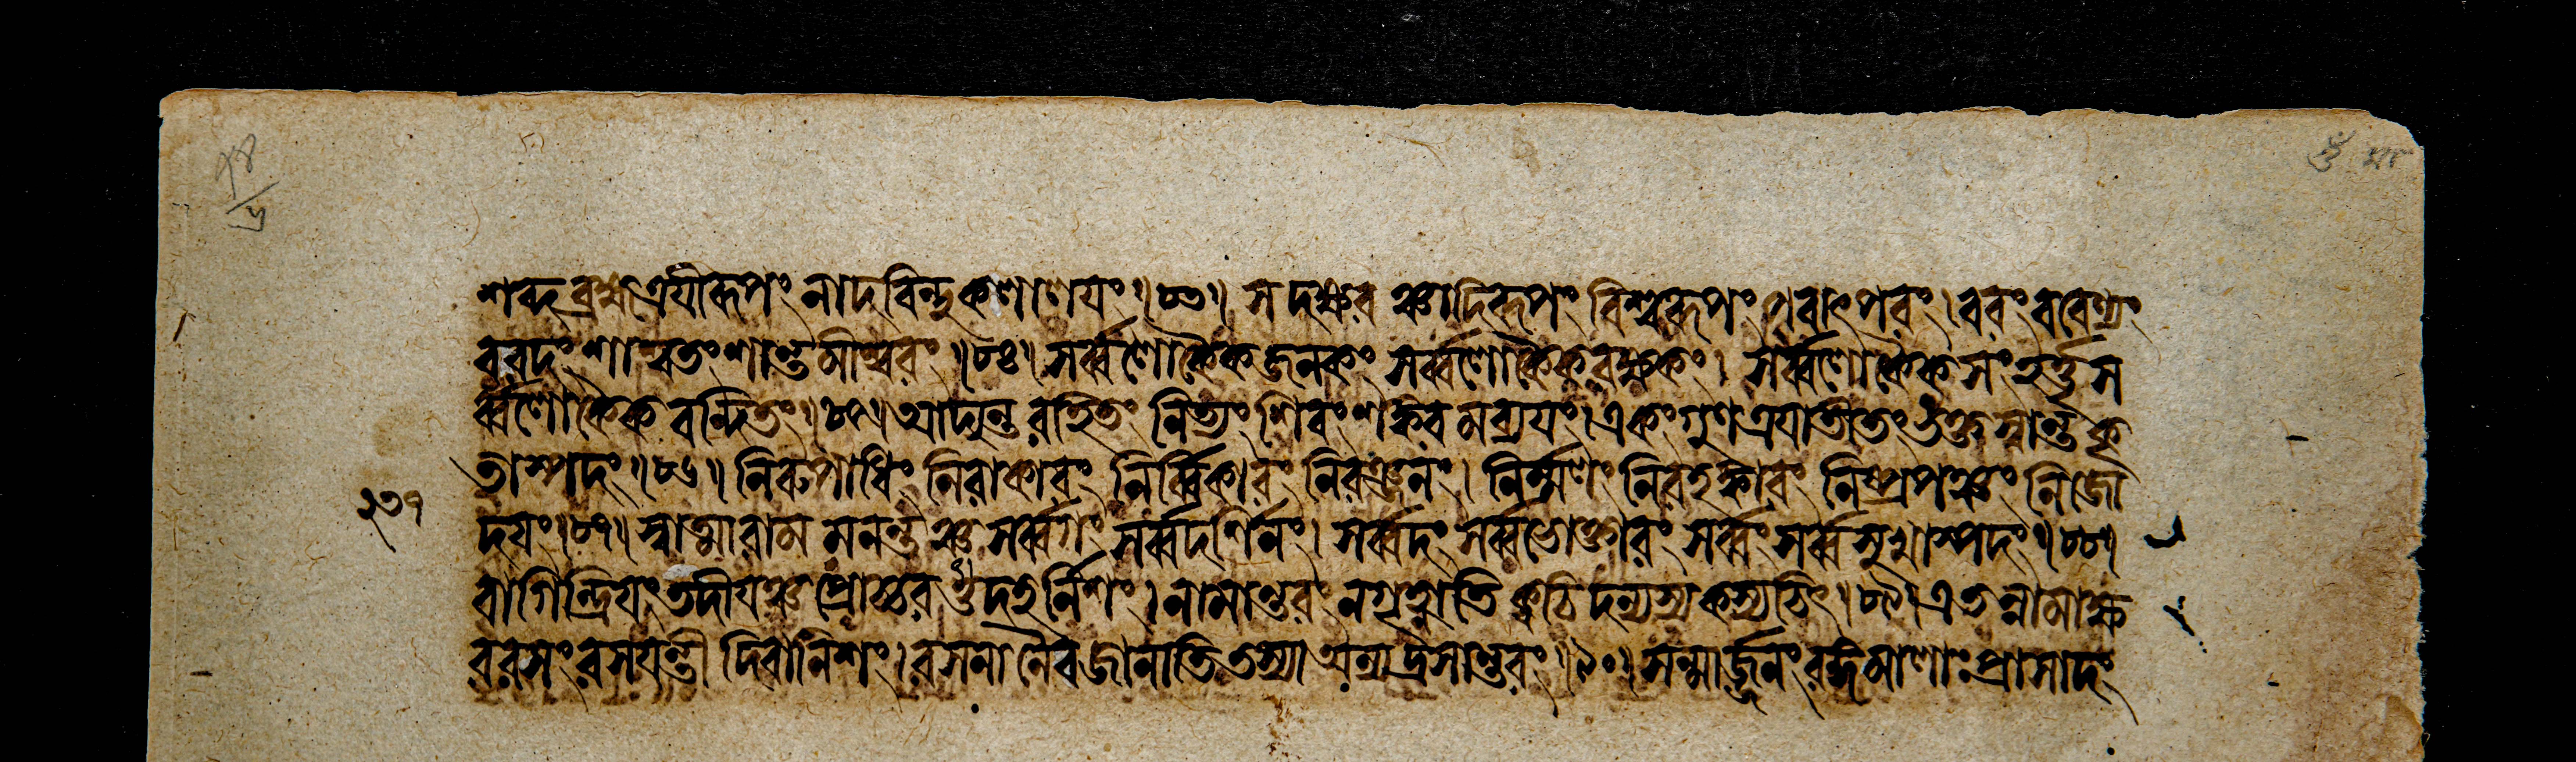 শব্দব্রহ্মত্রয়ীরূপং নাদবিন্দুকলালয়ং॥৮৩॥ সদক্ষরঞ্চাদিরূপং বিশ্বরূপং পরাৎপরং। বরং বরেণ্যং
বরদং শাশ্বতং শান্তমীশ্বরং॥৮৪॥ সর্ব্বলোকৈকজনকং সর্ব্বলোকৈকরক্ষকং। সর্ব্বলোকৈকসংহর্ত্তৃস
র্ব্বলোকৈকবন্দিতং॥৮৫॥ আদ্যন্তরহিতং নিত্যং শিবং শঙ্করমব্যয়ং। একং গুণত্রয়াতীতং ভক্তস্বান্তকৃ
তাস্পদং॥৮৬॥ নিরুপাধিং নিরাকারং নির্ব্বিকারং নিরঞ্জনং। নির্ম্মলং নিরহঙ্কারং নিষ্প্রপঞ্চং নিজো
২৩৭
দয়ং॥৮৭॥ স্বাত্মারামমনন্তঞ্চ সর্ব্বগং সর্ব্বদর্শিনং। সর্ব্বদং সর্ব্বভোক্তারং সর্ব্বং সর্ব্বসুখাস্পদং॥৮৮॥
বাগিন্দ্রিয়ং তদীয়ঞ্চ প্রোচ্চরত্তদহর্নিশং। নামান্তরং নগৃহ্ণাতি ক্বচিদন্যস্য কস্যচিৎ॥৮৯॥ এতন্নামাক্ষ
ররসং রসয়ন্তী দিবানিশং। রসনা নৈব জানাতি তস্যা অন্যদ্রসান্তরং॥৯০॥ সম্মার্জ্জনং রঙ্গমালাং প্রাসাদং